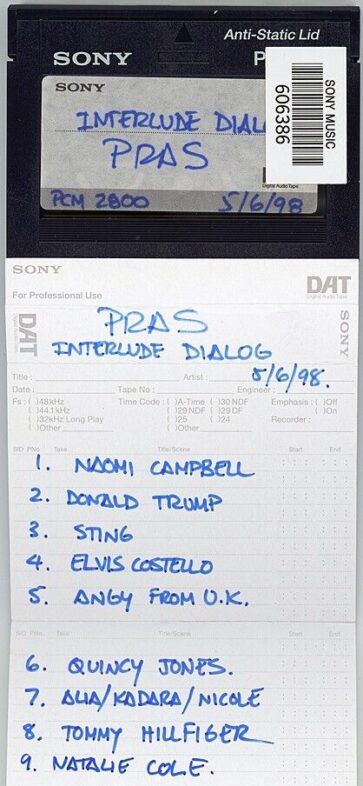 Anti-Static Lid
SONY
P
SONY
INTERLUDE DIAL
PRAS
Digital Audio Tape
PCM 2800 5/6/98
SONY MUSIC
606386
SONY
DAT
Digital Audio Tape
For Professional Use
DAT
SONY
PRAS
INTERLUDE DIALOG
5/6/98.
Title : Artist :
Date : Tape No : Engineer :
Fs : ( )48kHz Time Code : ( )A-Time ( )30 NDF Emphasis : ( )On
( )44.1kHz ( )29 NDF ( )29 DF ( )Off
( )32kHz Long Play ( )25 ( )24 Recorder :
( )Other ( )Other
S/D PNo. Take Title/Scene Start End
1. NAOMI CAMPBELL
2. DONALD TRUMP
3. STING
4. ELVIS COSTELLO
5. ANGY FROM U.K.
S/D PNo. Take Title/Scene Start End
6. QUINCY JONES.
7. ALIA/KADARA/NICOLE
8. TOMMY HILLFIGER
9. NATALIE COLE.